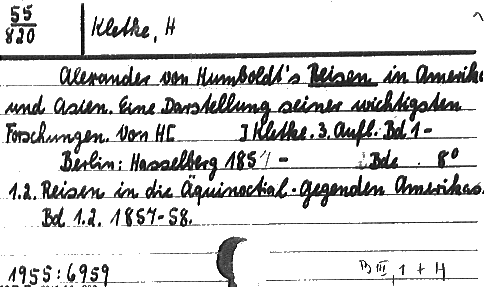 55
820
Kletke, H
Alexander von Humboldt's Reisen in Amerika
und Asien. Eine Darstellung seiner wichtigsten
Forschungen. Von H[ ] Kletke. 3. Aufl. Bd 1-
Berlin: Hasselberg 1857- Bde 8°
1.2. Reisen in die Äquinoctial-Gegenden Amerikas.
Bd 1.2. 1857-58.
1955:6959
1 + H